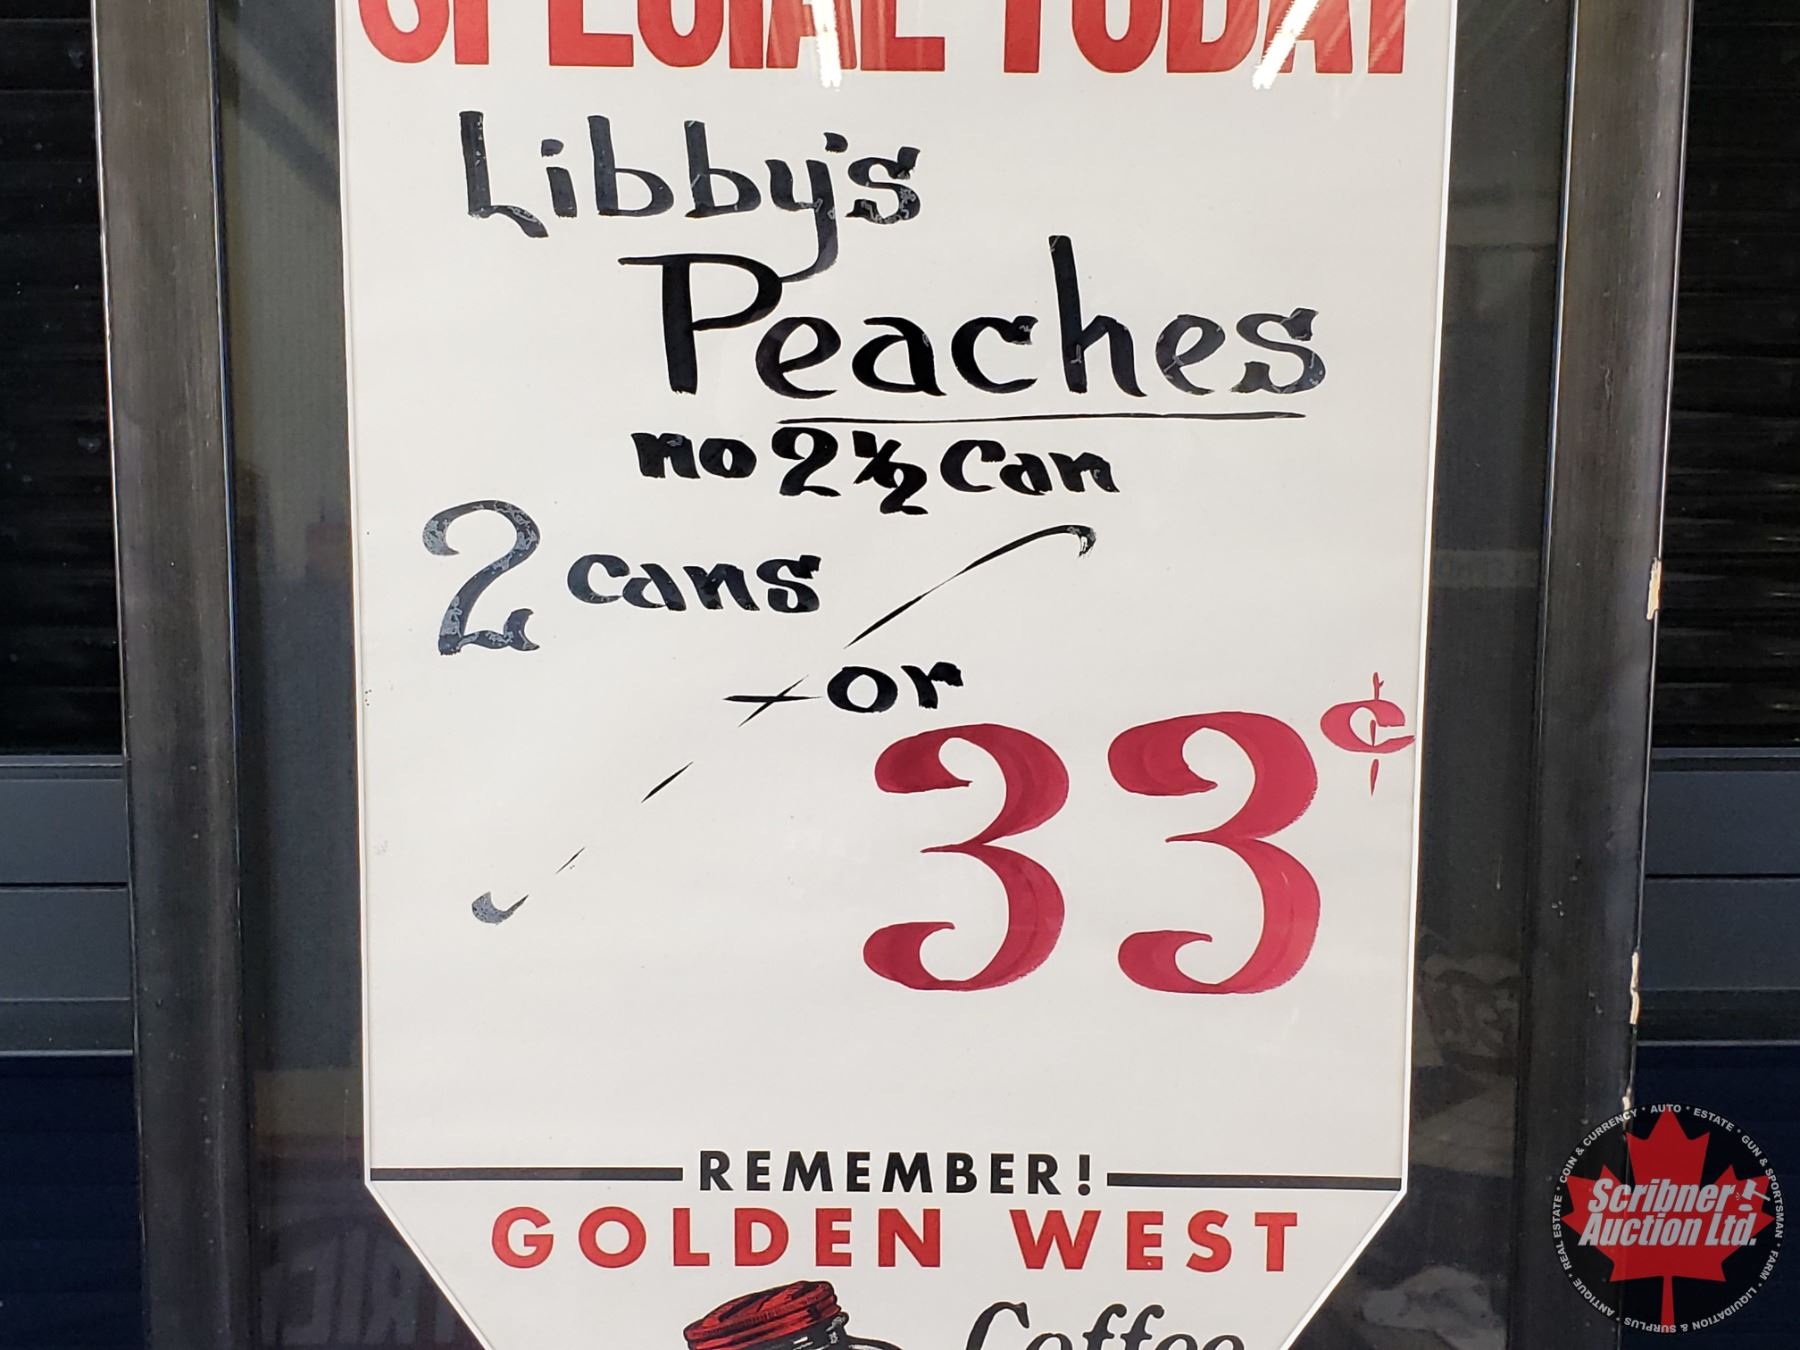 SPECIAL TODAY
Libby's
Peaches
no 2½ Can
2 cans
for
33¢
REMEMBER!
GOLDEN WEST
Coffee
Scribner
Auction Ltd.
COIN & CURRENCY * AUTO * ESTATE * GUN & SPORTSMAN * FARM * LIQUIDATION & SURPLUS * ANTIQUE * REAL ESTATE *